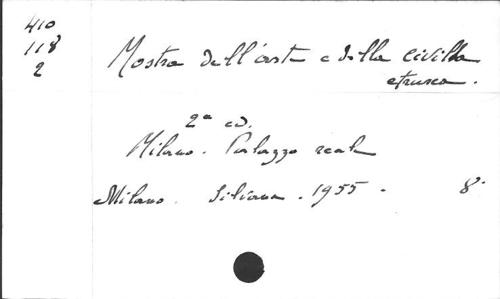 410
118
2
Mostra dell'arte e della civiltà
etrusca.
2ª ed.
Milano. Palazzo reale
Milano. Silvana. 1955. 8°